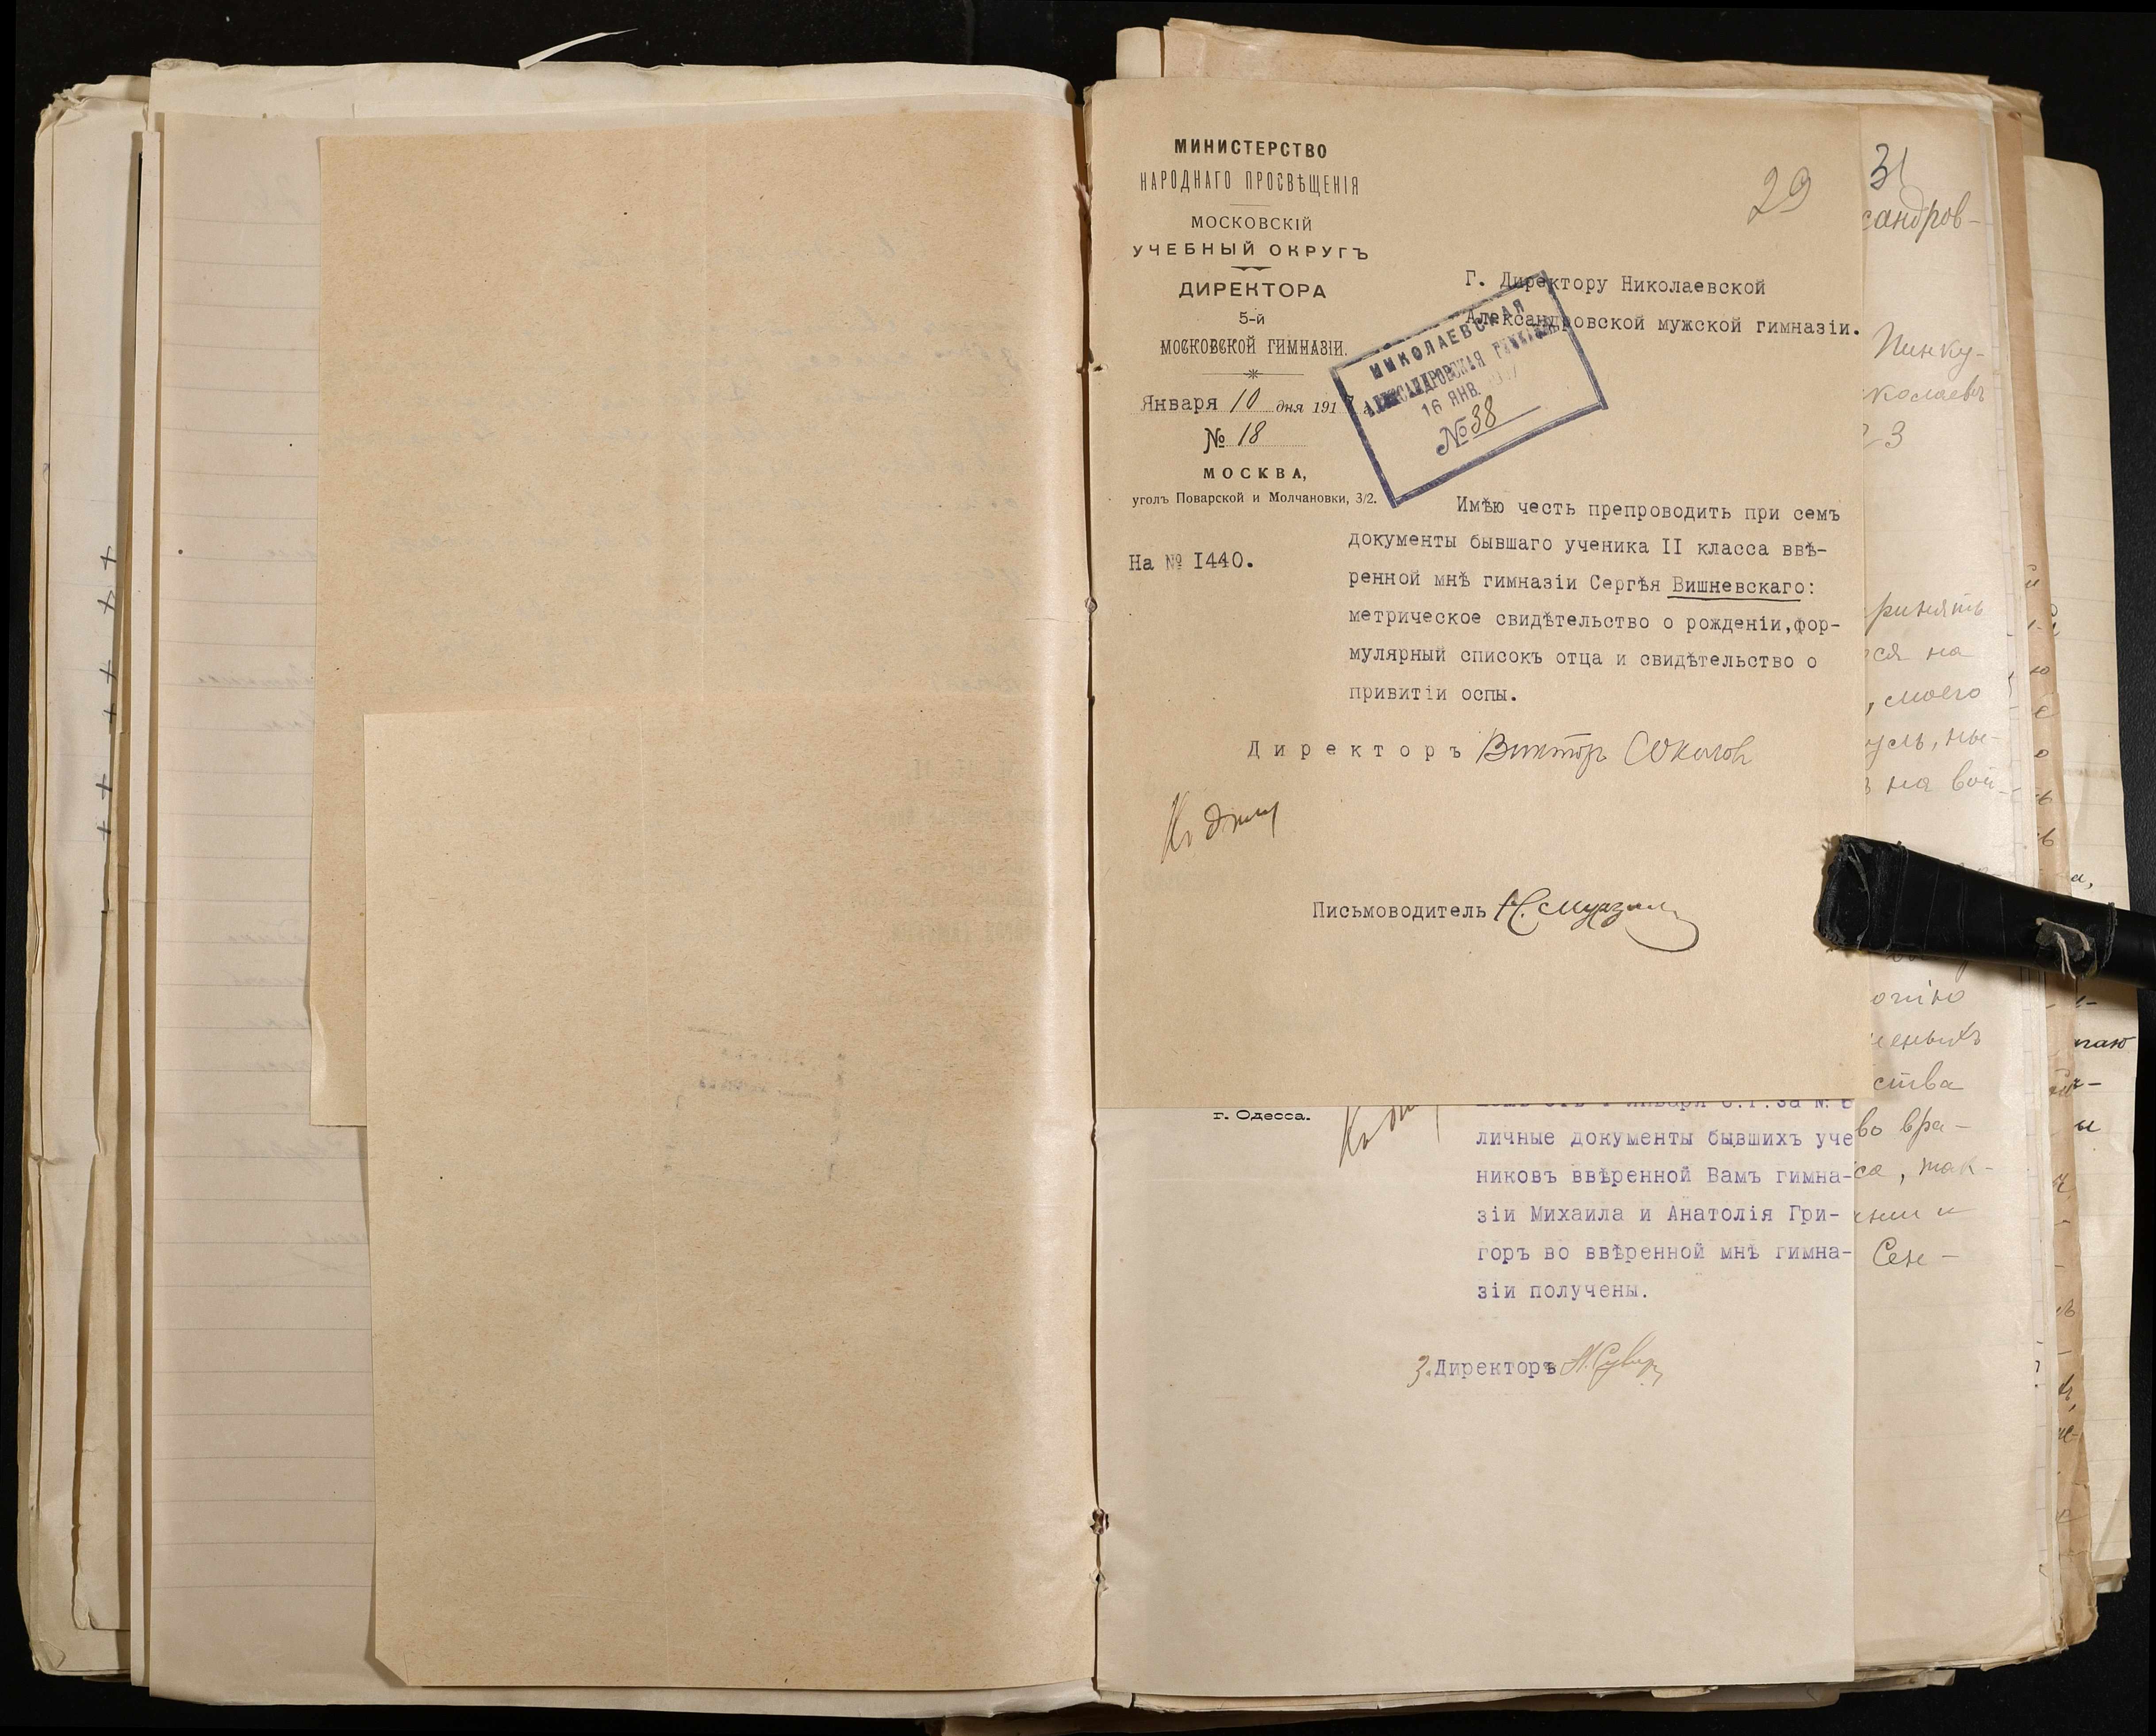 МИНИСТЕРСТВО
НАРОДНАГО ПРОСВѢЩЕНІЯ
МОСКОВСКІЙ
УЧЕБНЫЙ ОКРУГЪ
ДИРЕКТОРА
5-й
МОСКОВСКОЙ ГИМНАЗІИ.
Января 10 дня 1917
№ 18
МОСКВА,
уголъ Поварской и Молчановки, 3/2.
На № 1440.
29
Г. Директору Николаевской
Александровской мужской гимназіи.
НИКОЛАЕВСКАЯ
АЛЕКСАНДРОВСКАЯ ГИМНАЗІЯ
16 ЯНВ.
№ 38
Имѣю честь препроводить при семъ
документы бывшаго ученика II класса ввѣ-
ренной мнѣ гимназіи Сергѣя Вишневскаго:
метрическое свидѣтельство о рожденіи,фор-
мулярный списокъ отца и свидѣтельство о
привитіи оспы.
Директоръ Викторъ Соколов
Къ делу
Письмоводитель
г. Одесса.
января с.г. за №
личные документы бывшихъ уче
никовъ ввѣренной Вамъ гимна-
зіи Михаила и Анатолія Гри-
горъ во ввѣренной мнѣ гимна-
зіи получены.
З. Директоръ
31
сандров-
Пинку-
иколаевъ
23
ринять
ся на
, моего
усь, ны-
на вой-
ства
во вра-
са, так-
Сен-